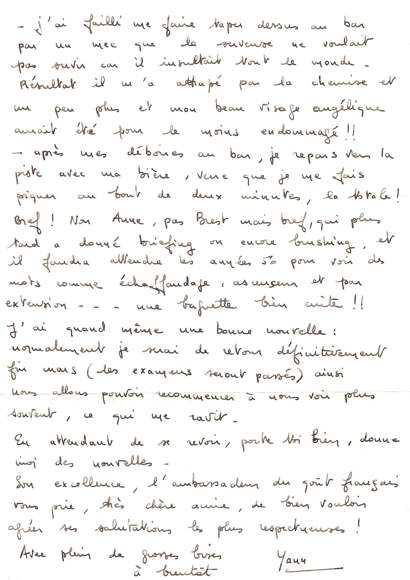 - j'ai failli me faire taper dessus au bar
par un mec que la serveuse ne voulait
pas servir car il insultait tout le monde.
Résultat il m'a attrapé par la chemise et
un peu plus et mon beau visage angélique
aurait été pour le moins endommagé !!
- après mes déboires au bar, je repars vers la
piste avec ma bière, verre que je me fais
piquer au bout de deux minutes, la totale !
Bref ! Non Anne, pas Brest mais bref, qui plus
tard a donné briefing ou encore brushing, et
il faudra attendre les années 50 pour voir des
mots comme échaffaudage, ascenseur et par
extension - - - une baguette bien cuite !!
J'ai quand même une bonne nouvelle :
normalement je serai de retour définitivement
fin mars (les examens seront passés) ainsi
nous allons pouvoir recommencer à nous voir plus
souvent, ce qui me ravit.
En attendant de se revoir, porte toi bien, donne
moi des nouvelles -
Son excellence, l'ambassadeur du goût français
vous prie, très chère amie, de bien vouloir
agréer ses salutations les plus respectueuses !
Avec plein de grosses bises Yann
à bientôt